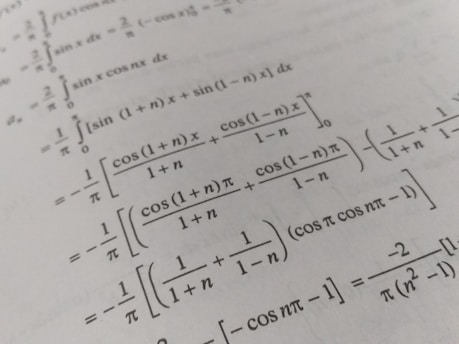 = 2/π ∫₀ f(x) cos
= 2/π ∫₀ sin x dx = 2/π (−cos x)₀ =
aₙ = 2/π ∫₀ sin x cos nx dx
= 1/π ∫₀ [sin (1 + n) x + sin (1 − n) x] dx
= − 1/π [ cos (1 + n) x / 1 + n + cos (1 − n) x / 1 − n ]₀^π
= − 1/π [ ( cos (1 + n) π / 1 + n + cos (1 − n) π / 1 − n ) − ( 1 / 1 + n + 1 / 1 −
= − 1/π [ ( 1 / 1 + n + 1 / 1 − n ) (cos π cos nπ − 1) ]
[− cos nπ − 1] = −2 / π (n² − 1) [1